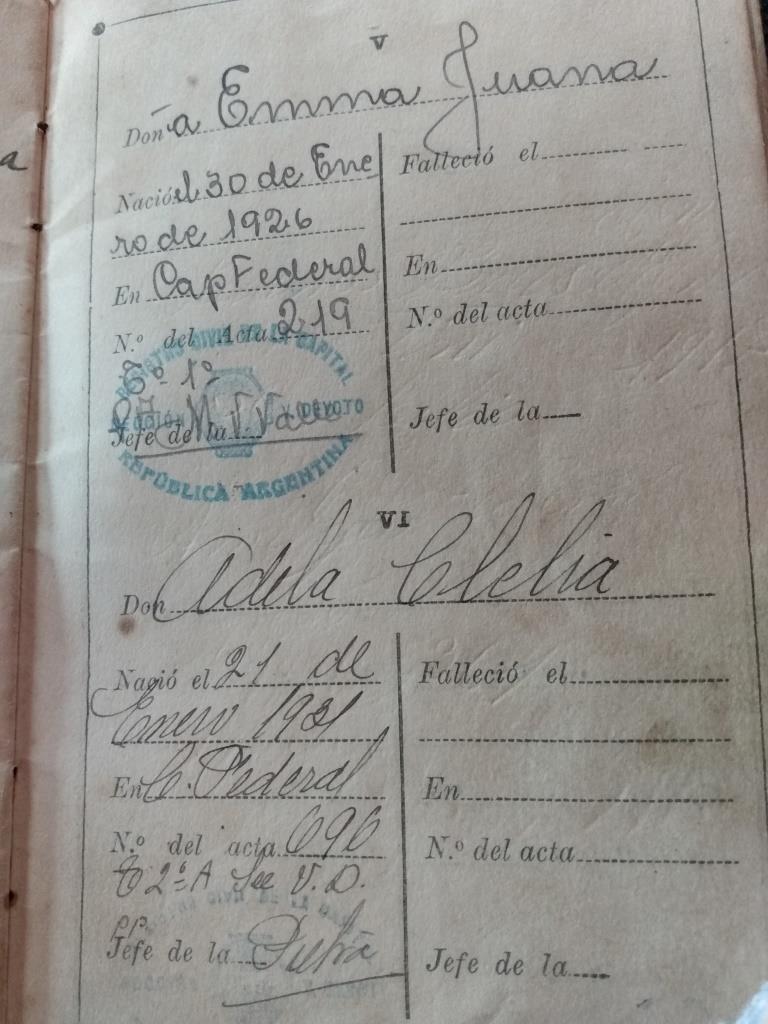 V
Doña Emma Juana
Nació el 30 de Ene
ro de 1926
En Cap Federal
N.º del Acta 219
Tº 1º
Jefe de la
REGISTRO CIVIL DE LA CAPITAL
SECCIÓN Y DEVOTO
REPÚBLICA ARGENTINA
Falleció el
En
N.º del acta
Jefe de la
VI
Don Adela Clelia
Nació el 21 de
Enero 1931
En C. Federal
N.º del acta 696
T 2º A Sec V. D.
pp
Jefe de la
Falleció el
En
N.º del acta
Jefe de la